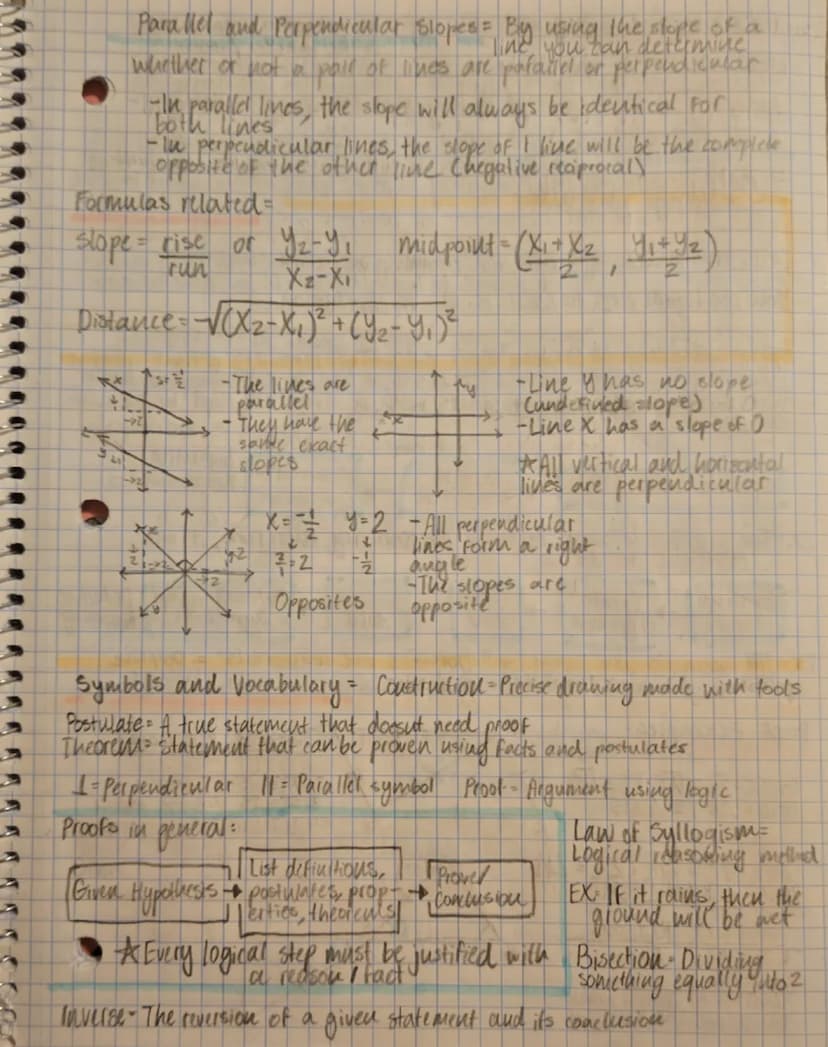 Parallel and Perpendicular Slopes = By using the slope of a
line you can determine
whether or not a pair of lines are parallel or perpendicular
-In parallel lines, the slope will always be identical for
both lines
-In perpendicular lines, the slope of 1 line will be the complete
opposite of the other line (negative reciprocal)
Formulas related=
Slope = rise/run or y₂-y₁/x₂-x₁ midpoint = (x₁+x₂/2, y₁+y₂/2)
Distance = √(x₂-x₁)² + (y₂-y₁)²
-The lines are
parallel
-They have the
same exact
slopes
-Line y has no slope
(undefined slope)
-Line x has a slope of 0
☆All vertical and horizontal
lines are perpendicular
x = -1/2 y = 2
2/1 = 2 -1/2
Opposites
-All perpendicular
lines form a right
angle
-The slopes are
opposite
Symbols and Vocabulary = Construction = Precise drawing made with tools
Postulate = A true statement that doesnt need proof
Theorem = Statement that can be proven using facts and postulates
⊥ = Perpendicular || = Parallel symbol Proof = Argument using logic
Proofs in general:
Given Hypothesis → List definitions, postulates, properties, theorems → Prove/ Conclusion
☆Every logical step must be justified with
a reason/fact
Law of Syllogism =
Logical reasoning method
EX: If it rains, then the
ground will be wet
Bisection - Dividing
something equally into 2
Inverse - The reversion of a given statement and its conclusion